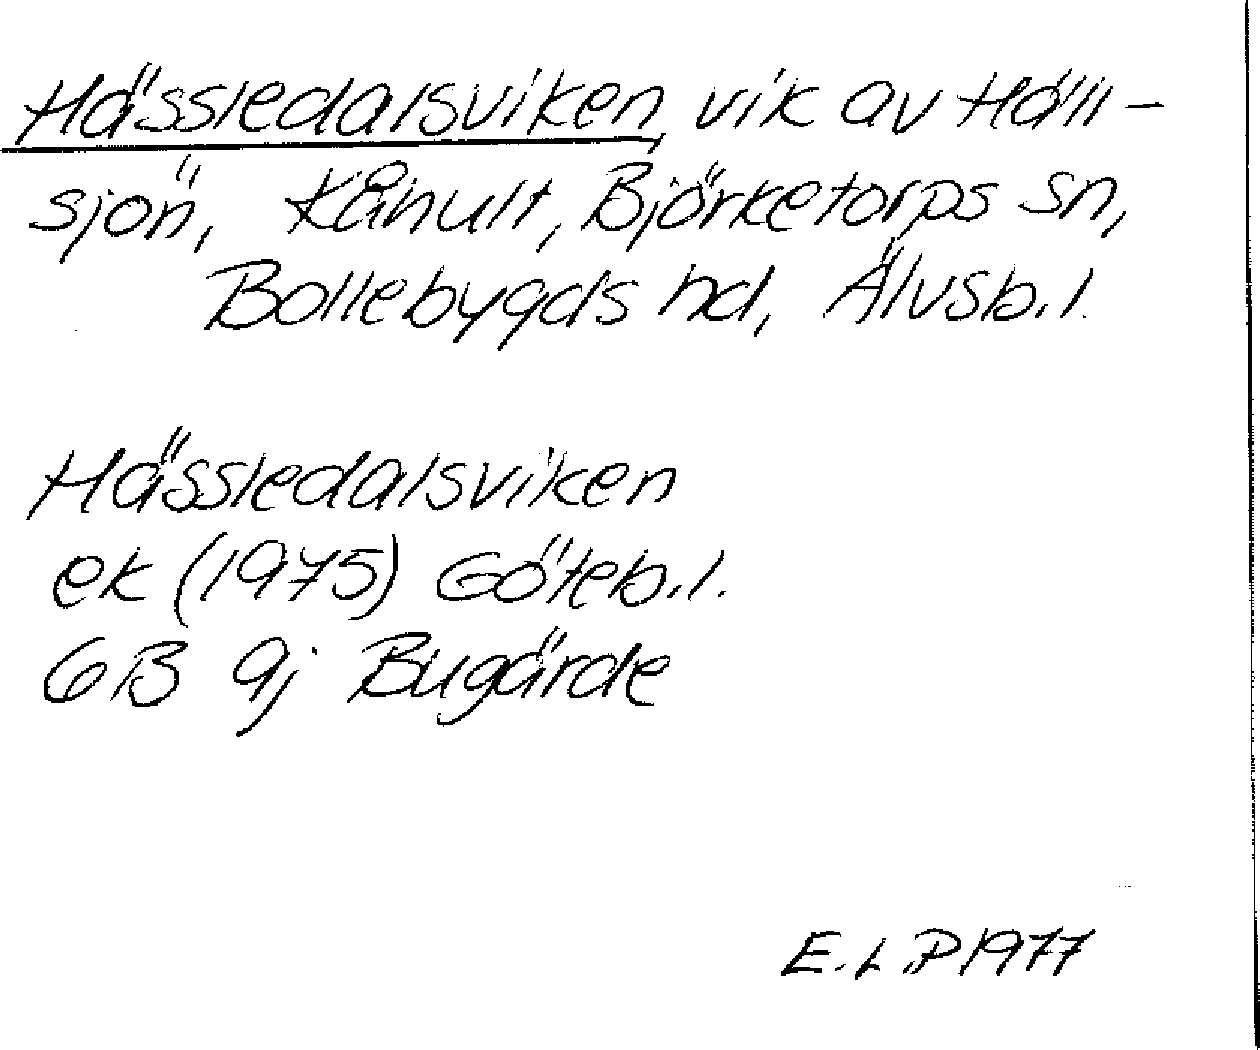 Hässledalsviken, vik av Häll-
sjön, Kånhult, Björketorps sn,
Bollebygds hd, Älvsb.l.
Hässledalsviken
ek (1975) Göteb.l.
6B 9j Bugärde
E.L.P 1977